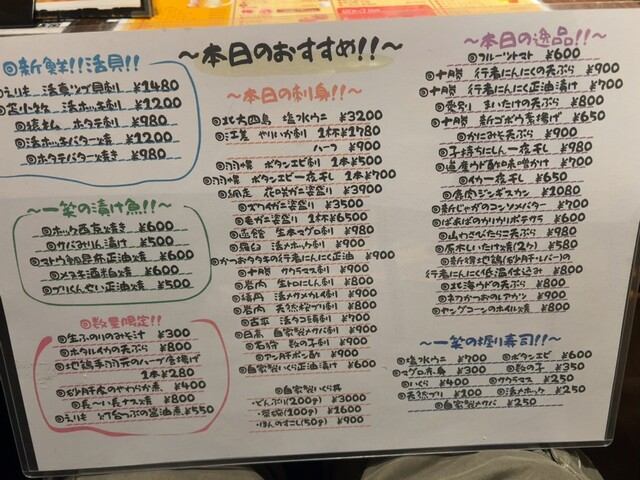 ◎新鮮!!活貝!!
◎えりも 活真ツブ貝刺 ¥1480
◎苫小牧 活ホッキ刺 ¥1200
◎猿払 ホタテ刺 ¥980
◎活ホッキバター焼き ¥1200
◎ホタテバター焼き ¥980
～一笑の漬け魚!!～
◎ホッケ西京焼き ¥600
◎サバみりん漬け ¥500
正油焼き ¥600
◎メヌキ酒粕焼 ¥600
◎ブリくんせい正油焼 ¥500
◎数量限定!!
◎生ふのりのみそ汁 ¥300
◎ホタルイカの天ぷら ¥800
◎地鶏手羽元のハーブ唐揚げ
1本 ¥280
やわらか煮 ¥400
◎長～い長ナス焼 ¥800
◎えりも 醤油煮 ¥550
～本日のおすすめ!!～
～本日の刺身!!～
◎北方四島 塩水ウニ ¥3200
◎江差 やりいか刺 1杯¥1780
ハーフ ¥900
◎羽幌 ボタンエビ刺 1本¥500
◎羽幌 ボタンエビ一夜干し 1本¥700
◎網走 花咲ガニ姿盛り ¥3900
◎ズワイガニ姿盛り ¥3500
◎毛ガニ姿盛り 1杯¥6500
◎函館 生本マグロ刺 ¥980
◎羅臼 活〆ホッケ刺 ¥900
◎かつおタタキの行者にんにく正油 ¥900
◎十勝 サクラマス刺 ¥900
◎岩内 生トロにしん刺 ¥800
◎積丹 活〆カスベ刺 ¥900
◎岩内 天然桜ブリ刺 ¥800
◎古平 活タコ頭刺 ¥700
◎日高 自家製〆サバ刺 ¥900
◎石狩 数の子刺 ¥900
◎アン肝ポン酢 ¥900
◎自家製いくら正油漬け ¥600
◎自家製いくら丼
・どんぶり(200g) ¥3000
・茶碗(100g) ¥1600
・ほんのすこし(50g) ¥900
～本日の逸品!!～
◎フルーツトマト ¥600
◎十勝 行者にんにくの天ぷら ¥900
◎十勝 行者にんにく正油漬け ¥700
◎愛別 まいたけの天ぷら ¥800
◎十勝 新ゴボウ素揚げ ¥650
◎かにみそ天ぷら ¥900
◎子持ちにしん一夜干し ¥900
◎道産ウド酢味噌かけ ¥700
◎イカ一夜干し ¥650
◎鹿肉ジンギスカン ¥1080
◎新じゃがのコンソメバター ¥700
◎ばぁばのカリカリポテサラ ¥600
◎山わさびたらこ天ぷら ¥980
◎原木しいたけ焼(2ケ) ¥580
◎新得地鶏(砂肝・レバー)の
行者にんにく低温仕込み ¥800
◎北海ウドの天ぷら ¥800
◎ネブかつおのルアウン ¥900
◎ヤングコーンのホイル焼 ¥800
～一笑の握り寿司!!～
◎塩水ウニ ¥700 ◎ボタンエビ ¥600
◎マグロ赤身 ¥300 ◎数の子 ¥350
◎いくら ¥400 ◎サクラマス ¥250
◎天然ブリ ¥100 ◎活〆ホッケ ¥250
◎自家製〆サバ ¥250